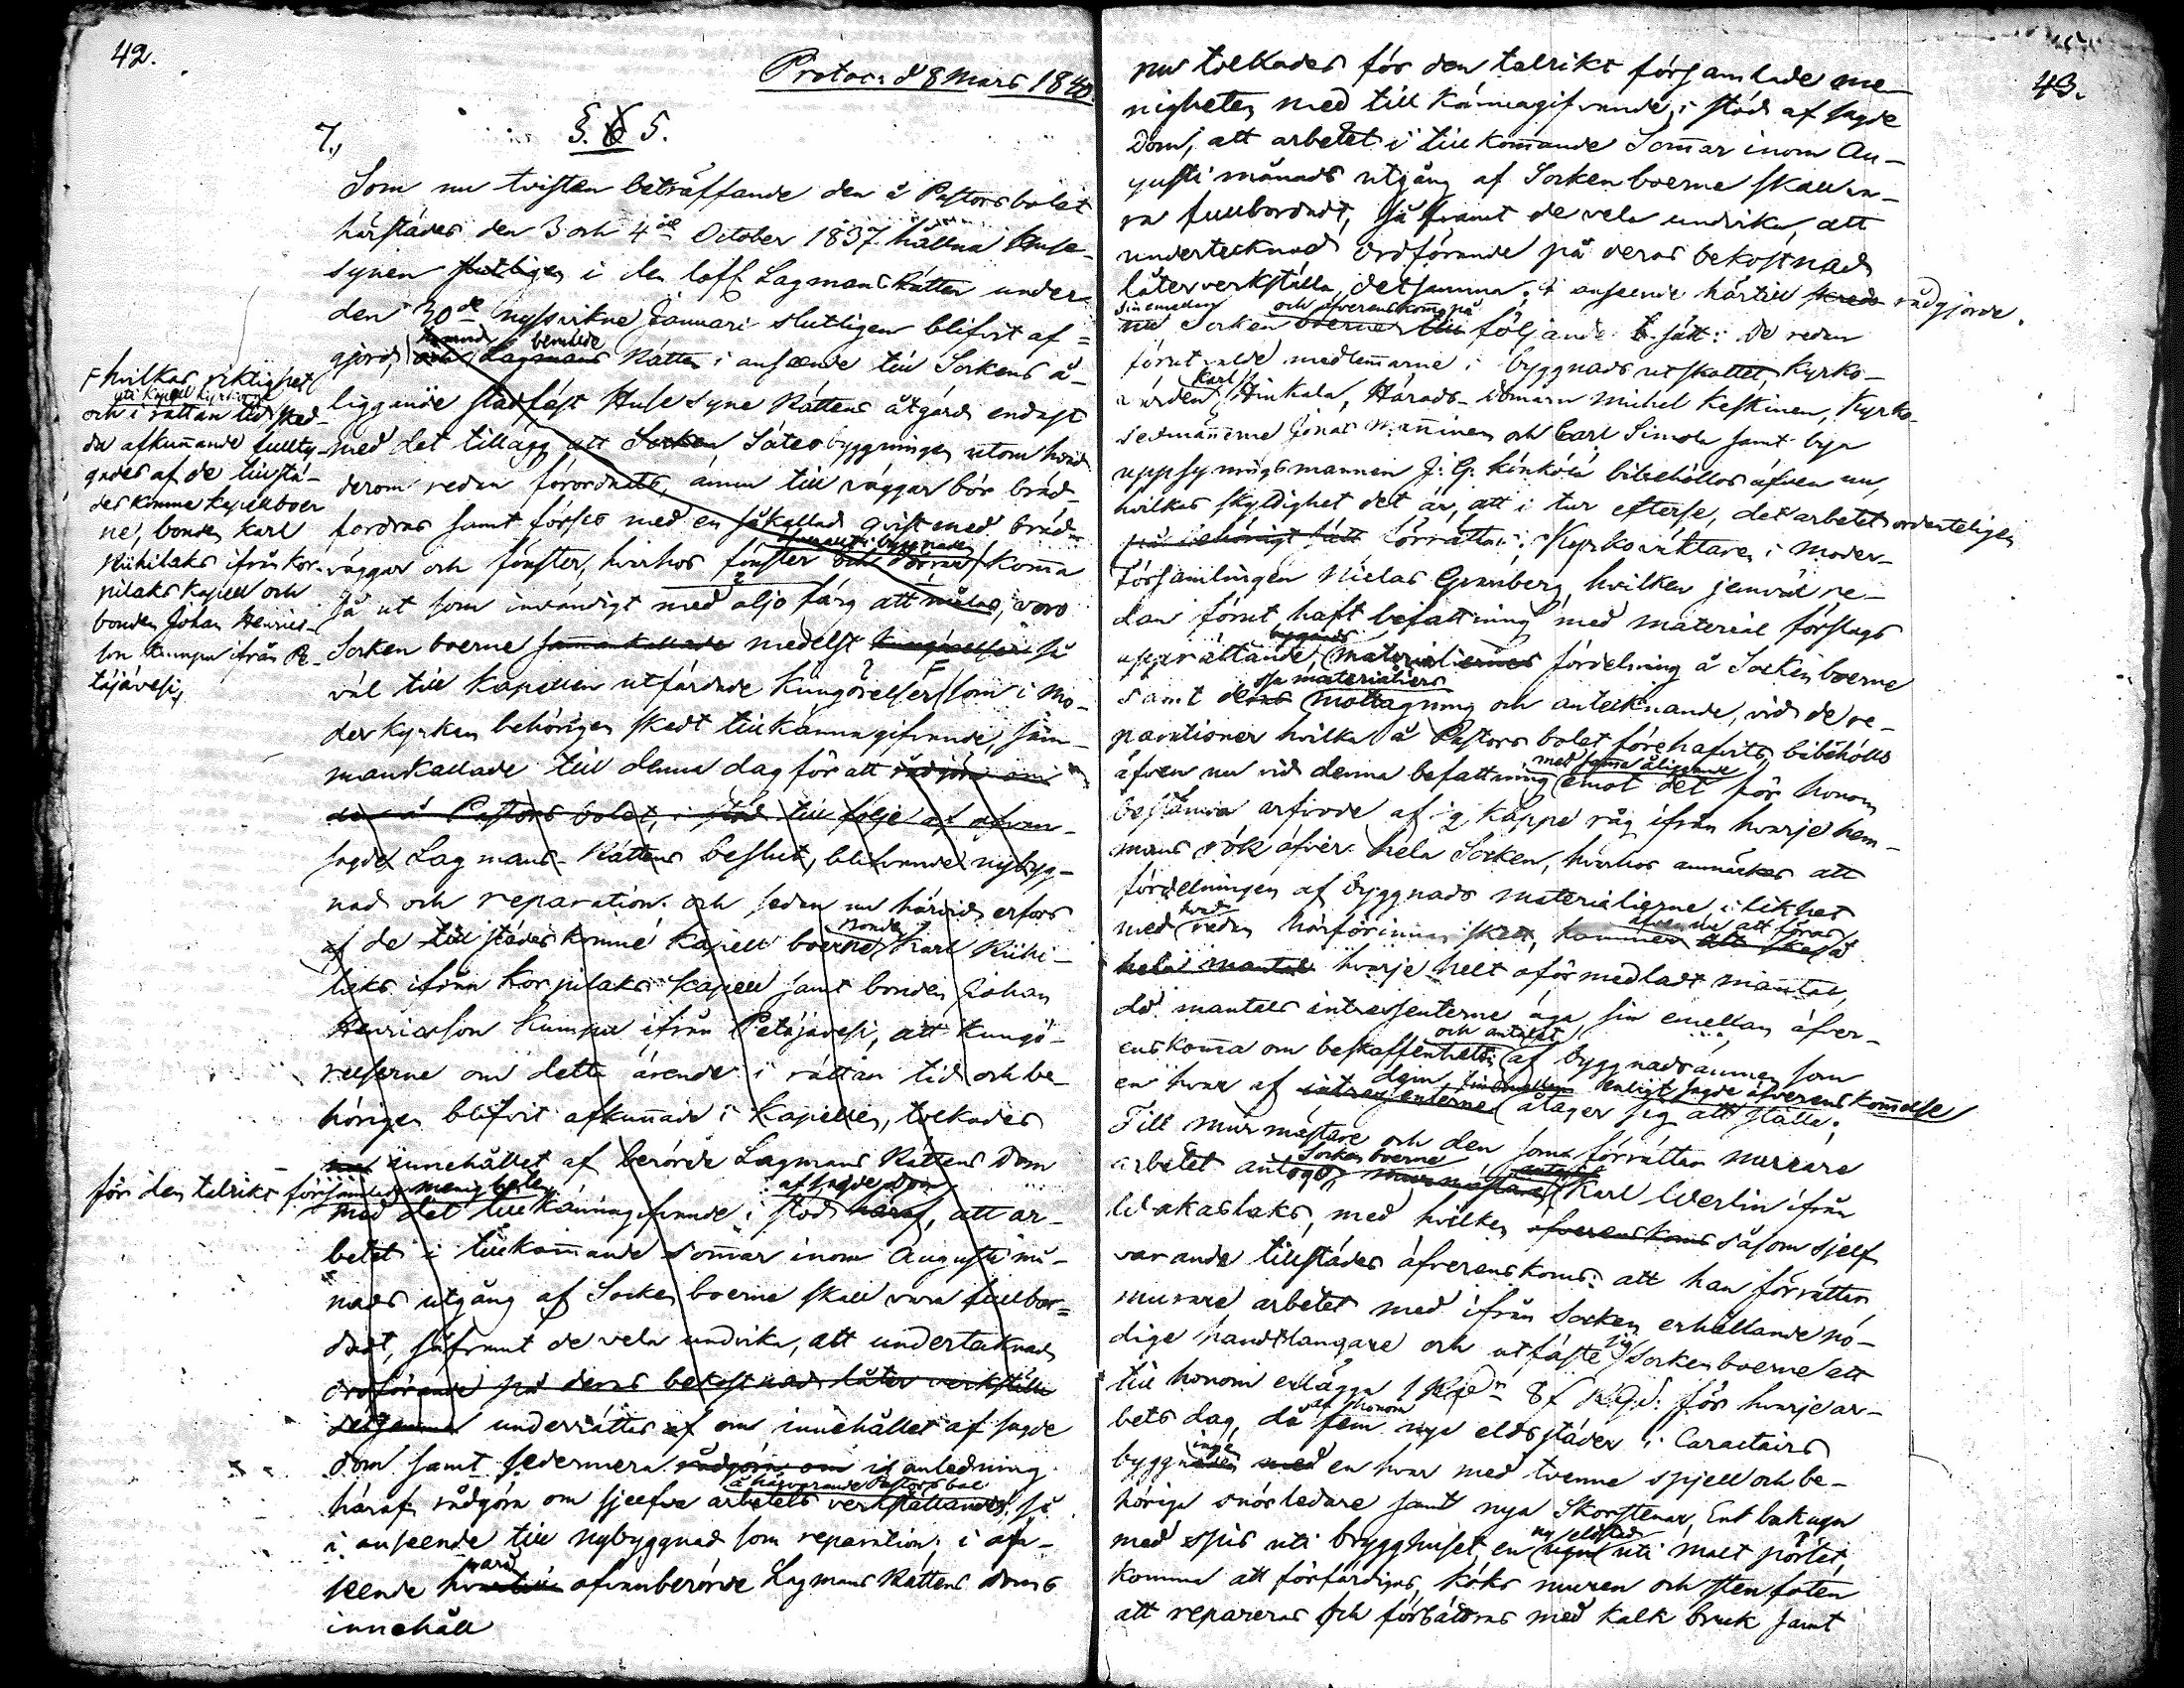 42.
Protoc: d 8 Mars 1840.
7.,
§. 6 5.
Som nu tvisten beträffande den å Pastorsbolet
härstädes den 3 och 4de October 1837 hållna Huse-
synen slutligen i den loff. Lagmans Rätten under
den 30de nysswikne Januari slutligen blifvit af-
gjord, och Lagmans Rätten i anseende till Sockens å-
berörde
liggande stadfäst Huse syne Rättens åtgärd endast
med det tillägg att Socken, Sätesbyggningen utom hvad
derom redan förordnats, ännu till väggar bör bräd-
fordras samt förses med en såkallad qvist med bräd-
väggar och fönster, hvarhos fönster och dörrar komma
så ut som invändigt med oljo färg att målas, voro
Socken boerne sammankallade medelst kungörelser så
väl till Kapellen utfärdade kungörelser som i Mo-
der kyrkan behörigen skedt tillkännagifvande, sam-
mankallade till denna dag för att rådgöra om
den å Pastors bolet, i stöd till följe af ofvan-
sagde Lagmans-Rättens beslut, blifvande nybygg-
nad och reparation. och sedan nu härvid erfors
af de tillstädeskomne Kapell boerne bonden Karl Riihi-
laks ifrån Korpilaks Kapell samt bonden Johan
Henricsson Kumpu ifrån Petäjävesi, att kungö-
relserne om detta ärende i rättan tid och be-
hörigen blifvit afkunnade i Kapellen, tolkades
nu innehållet af berörde Lagmans Rättens Dom
för den talrikt församlade menigheten
med det tillkännagifvande i stöd häraf, att ar-
af sagde dom
betet i tillkommande sommar inom Augusti må-
nads utgång af Socken boerne skall vara fullbor-
dadt, såframt de vela undvika, att undertecknad
ordförande på deras bekostnad låter verkställa
detsamma underrättas af om innehållet af sagde
dom samt sedermera rådgöra om i anledning
häraf rådgöra om sjelfva arbetets verkställande så
å härvarande Pastors bol
i anseende till nybyggnad som reparation; i af-
seende hvartill ofvanberörde Lagmans Rättens doms
innehåll
F hvilkas riktighet
uti Kapell kyrkorne
och i rättan tid sked-
da afkunnande fullty-
gades af de tillstä-
des komne Kapellboer
ne, bonden Karl
Riihilaks ifrån Kor-
pilaks Kapell och
bonden Johan Henrics-
son Kumpu ifrån Pe-
täjävesi,
43.
nu tolkades för den talrikt församlade me-
nigheten med tillkännagifvande, i stöd af sagde
Dom, att arbetet i tillkommande Sommar inom Au-
gusti månads utgång af Sockenboerne skall va-
ra fullbordadt, så framt de vela undvika, att
undertecknad ordförande på deras bekostnad
låter verkställa detsamma; i anseende härtill skreds rådgjorde
sinemellan och öfverenskommo på
nu Socken boerne till följande sätt: De redan
förut valde medlemmarne i byggnads utskottet, Kyrko-
värden Karl Hinkala, Härads-domarn Michel Keskinen, Kyrko-
sexmännerne Jonas Manninen och Carl Simola samt bya
uppsyningsmannen J. G. Könkölä bibehöllos äfven nu,
hvilkas skyldighet det är, att i tur efterse, det arbetet ordenteligen
på behörigt sätt förrättas; Kyrkoväktaren i Moder-
församlingen Niclas Granberg, hvilken jemväl re-
dan förut haft befattning med material förslags
upprättande, byggnads materialiernes fördelning å Sockenboerne
samt deras mottagning och antecknande, vid de re-
parationer hvilka å Pastors bolet förehafvits, bibehölls
äfven nu vid denna befattning med samma åliggande emot det för honom
bestämda arfvode af ½ kappe råg ifrån hvarje hem-
mans rök öfver hela Socken, hvarhos anmärkes att
fördelningen af byggnads materialierne i likhet
med hvad redan härförinnan skett, kommer äfven nu att föras
hela mantal hvarje helt oförmedladt mantal,
då mantals intressenterne äga sin emellan öfver-
enskomma om beskaffenheten och antalet af byggnadsämnen som
en hvar af intressenterne dem enligt sagde öfverenskommelse
åtager sig att ställa;
Till murmästare och den som förrättar murare
arbetet antogo Sockenboerne murmästare Karl Werlin ifrån
Wakaslaks, med hvilken öfverenskoms såsom sjelf
varande tillstädes öfverenskoms: att han förrättar
murare arbetet med ifrån Socken erhållande nö-
dige handtlangare och utfäste sig Sockenboerne att
till honom erlägga 1 Rdr 8 ß R.G.d. för hvarje ar-
bets dag, då af honom fem nya eldstäder i Caractairs
byggningen med en hvar med tvenne spjell och be-
höriga rörledare samt nya Skorstenar, Ent bakugn
med spis uti brygghuset, en ny eldstad uti malt pörtet,
komma att förfärdigas, köks muren och stenfoten
att repareras och förbättras med kalk bruk samt